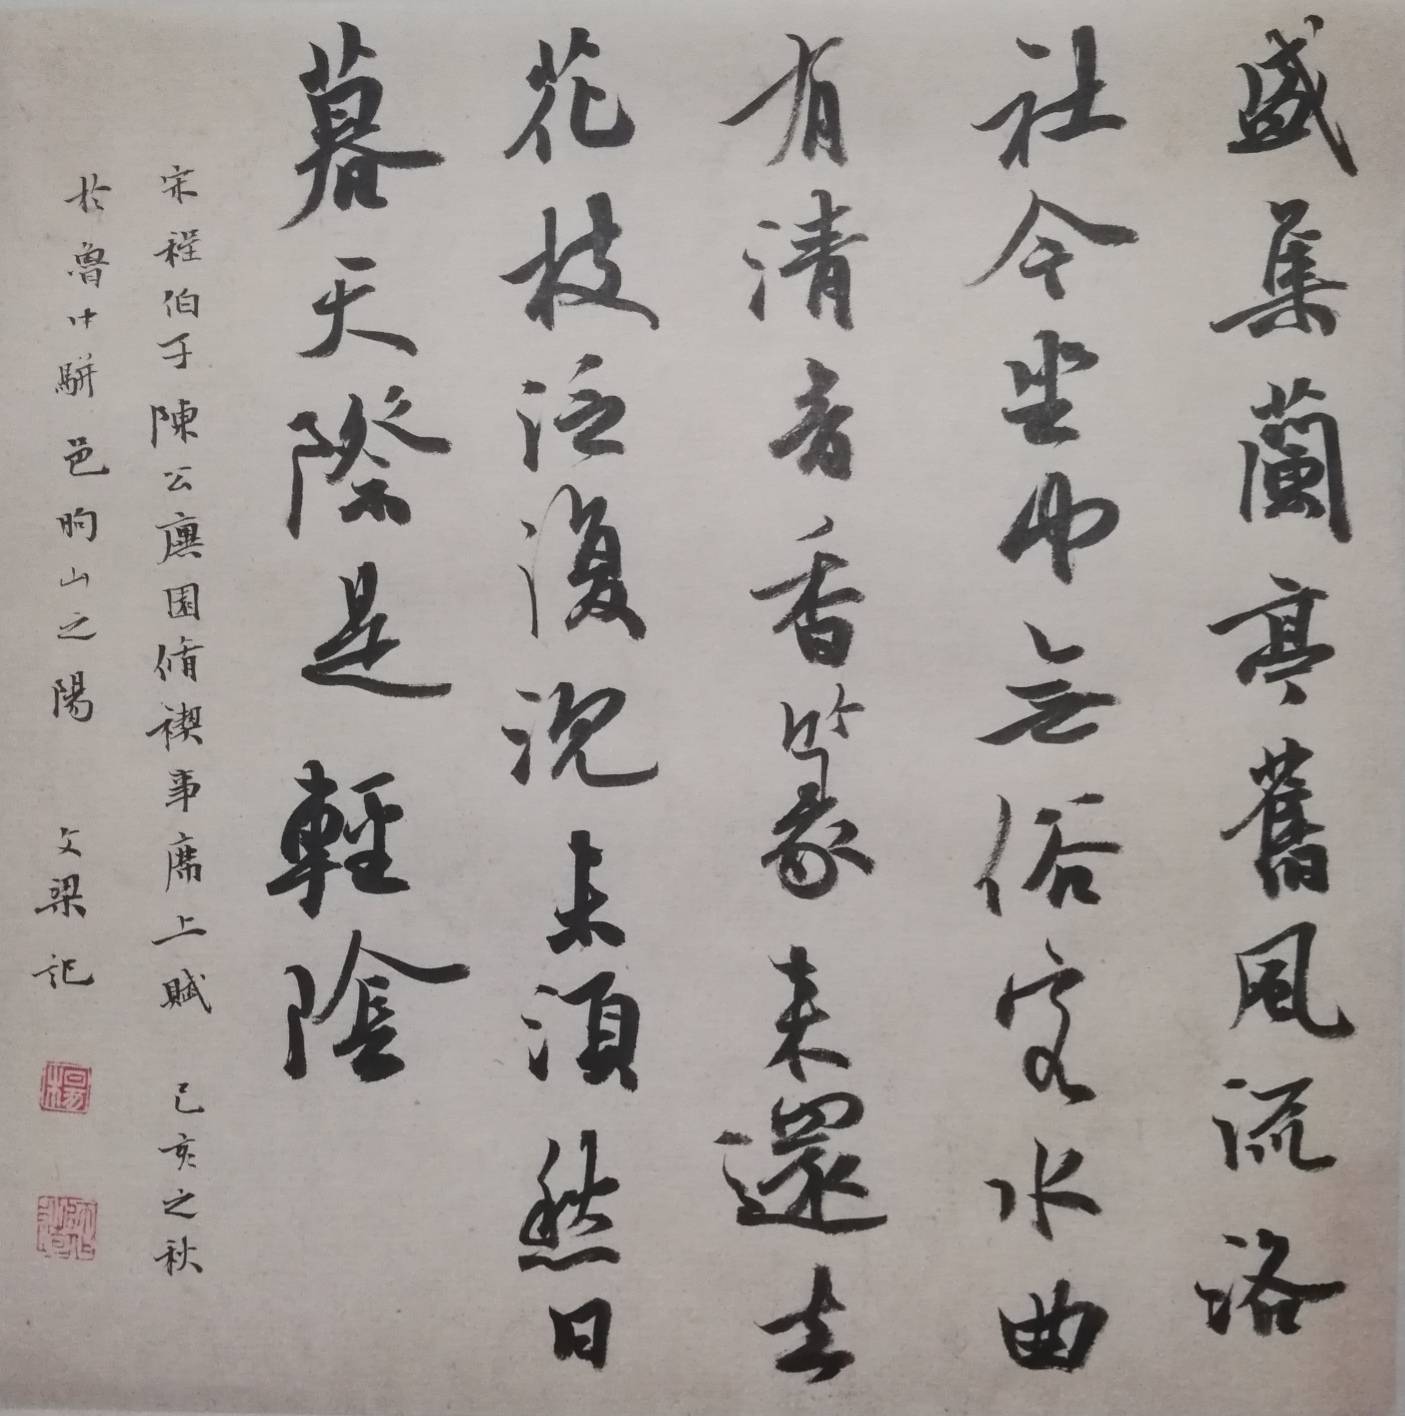 盛集蘭亭舊風流洛
社今坐中無俗客水曲
有清音香篆来還去
花枝泛復沈未須愁日
暮天際是輕陰
宋程伯子陳公廙園脩禊事席上賦 己亥之秋
於魯中駢邑朐山之陽 文梁記
楊